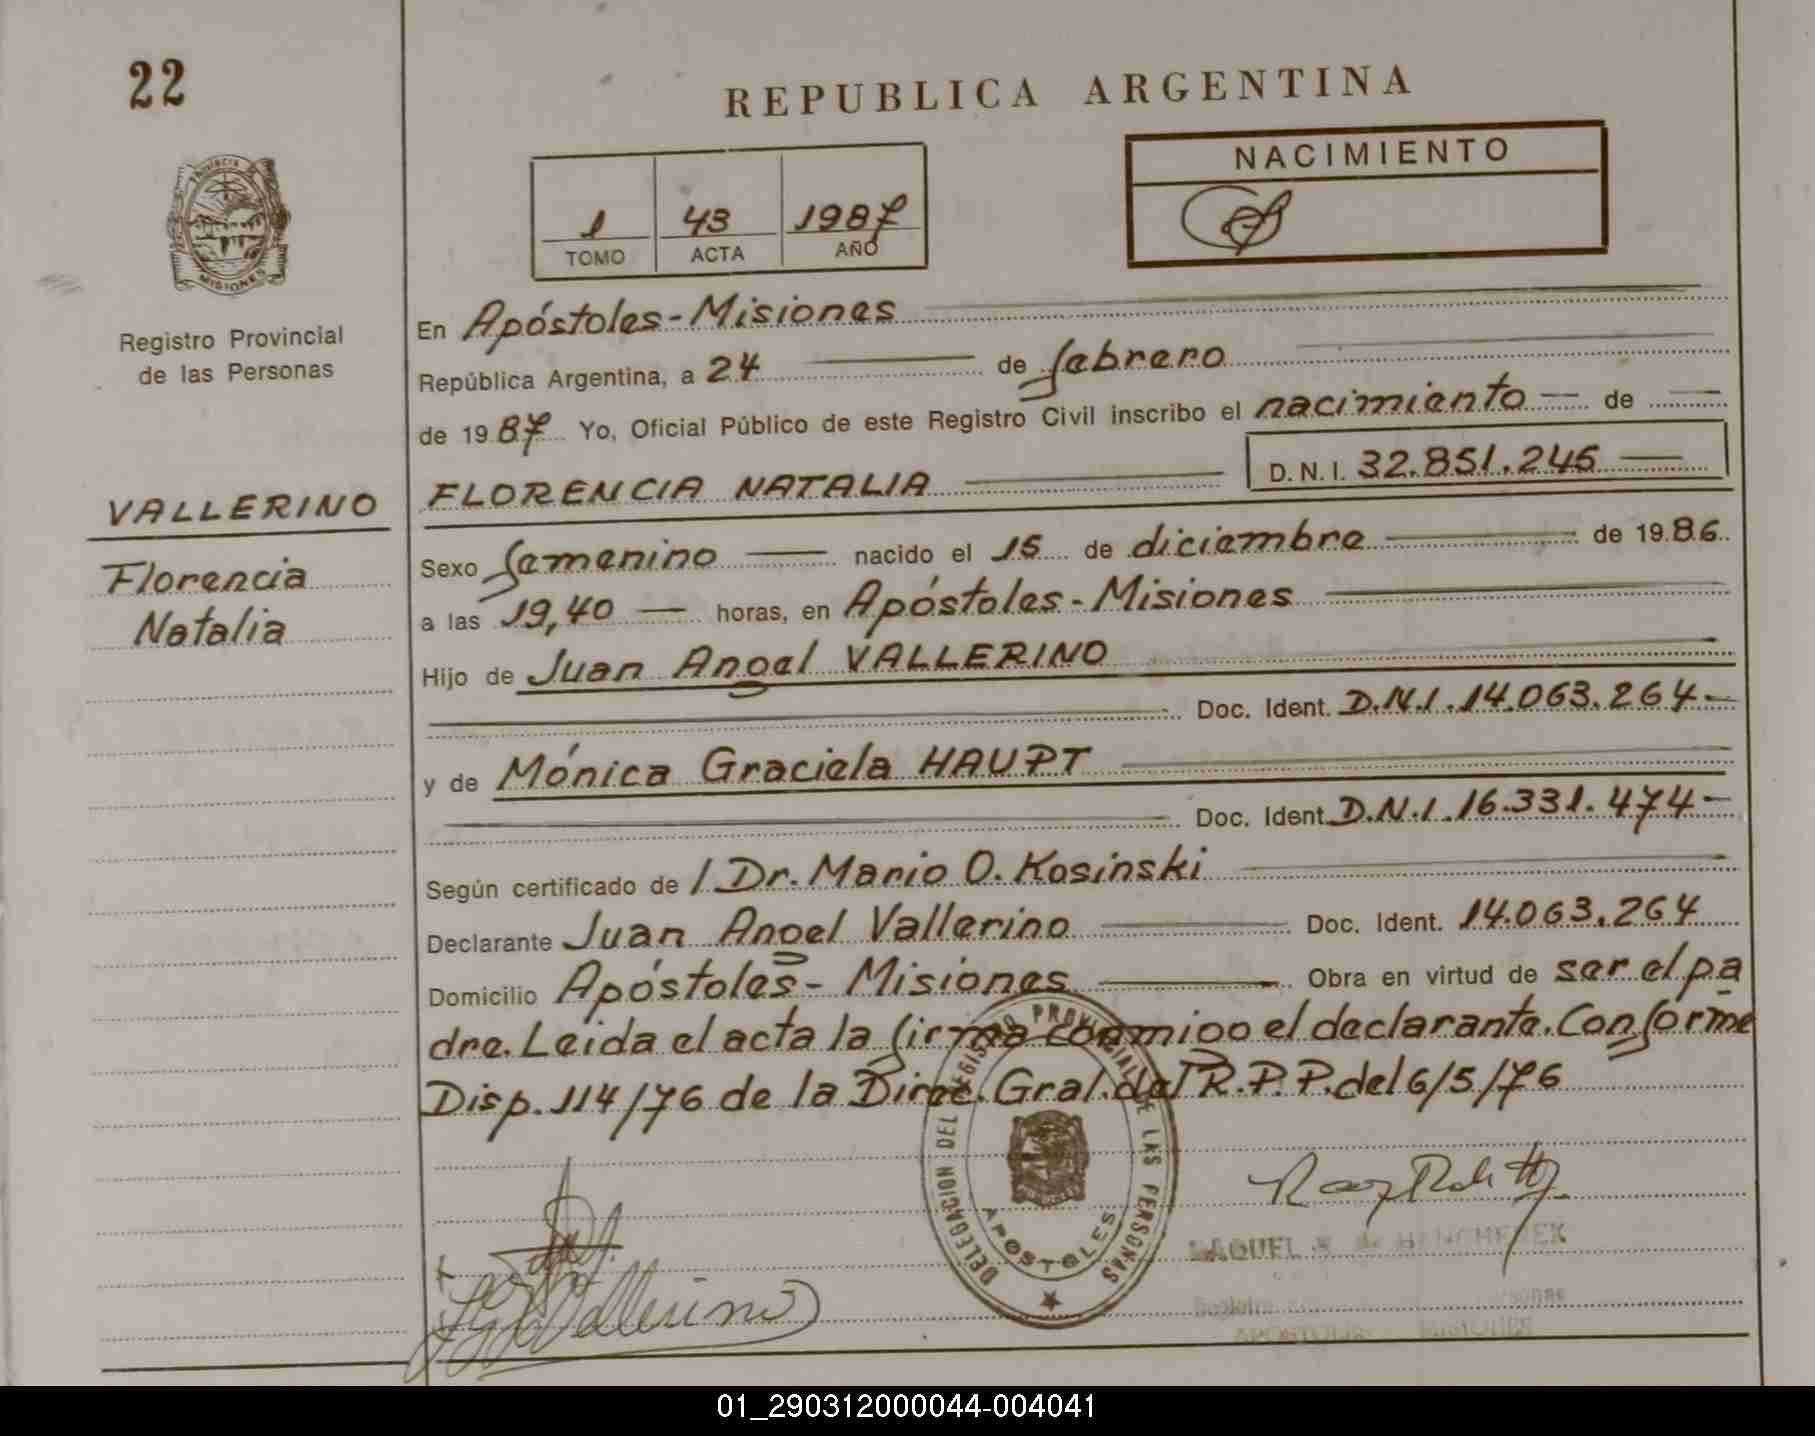 22
REPUBLICA ARGENTINA
NACIMIENTO
1 43 1987
TOMO ACTA AÑO
PROVINCIA DE
MISIONES
Registro Provincial
de las Personas
VALLERINO
Florencia
Natalia
En Apóstoles-Misiones
República Argentina, a 24 de febrero
de 1987 Yo, Oficial Público de este Registro Civil inscribo el nacimiento de
FLORENCIA NATALIA D.N.I. 32.851.245
Sexo femenino nacido el 15 de diciembre de 1986
a las 19,40 horas, en Apóstoles-Misiones
Hijo de Juan Angel VALLERINO
Doc. Ident. D.N.I. 14.063.264-
y de Mónica Graciela HAUPT
Doc. Ident. D.N.I. 16.331.474-
Según certificado de / Dr. Mario O. Kosinski
Declarante Juan Angel Vallerino Doc. Ident. 14.063.264
Domicilio Apóstoles-Misiones Obra en virtud de ser el pa
dre. Leida el acta la firma conmigo el declarante. Conforme
Disp. 114/76 de la Direc. Gral. del R.P.P. del 6/5/76
DELEGACION DEL REGISTRO PROVINCIAL DE LAS PERSONAS
APOSTOLES
Vallerino
01_290312000044-004041